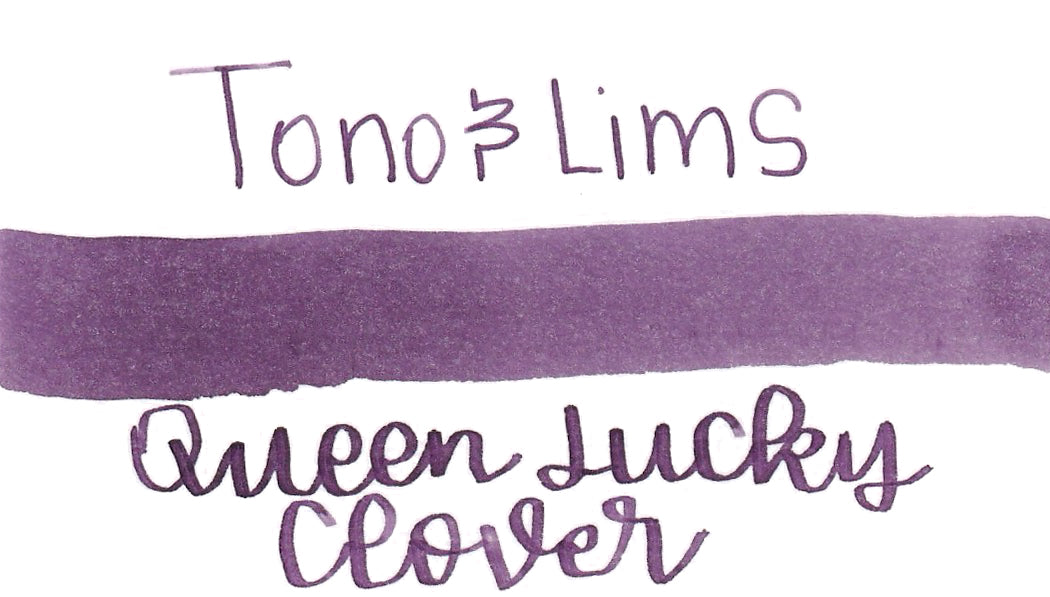 Tono & Lims
Queen Lucky
Clover